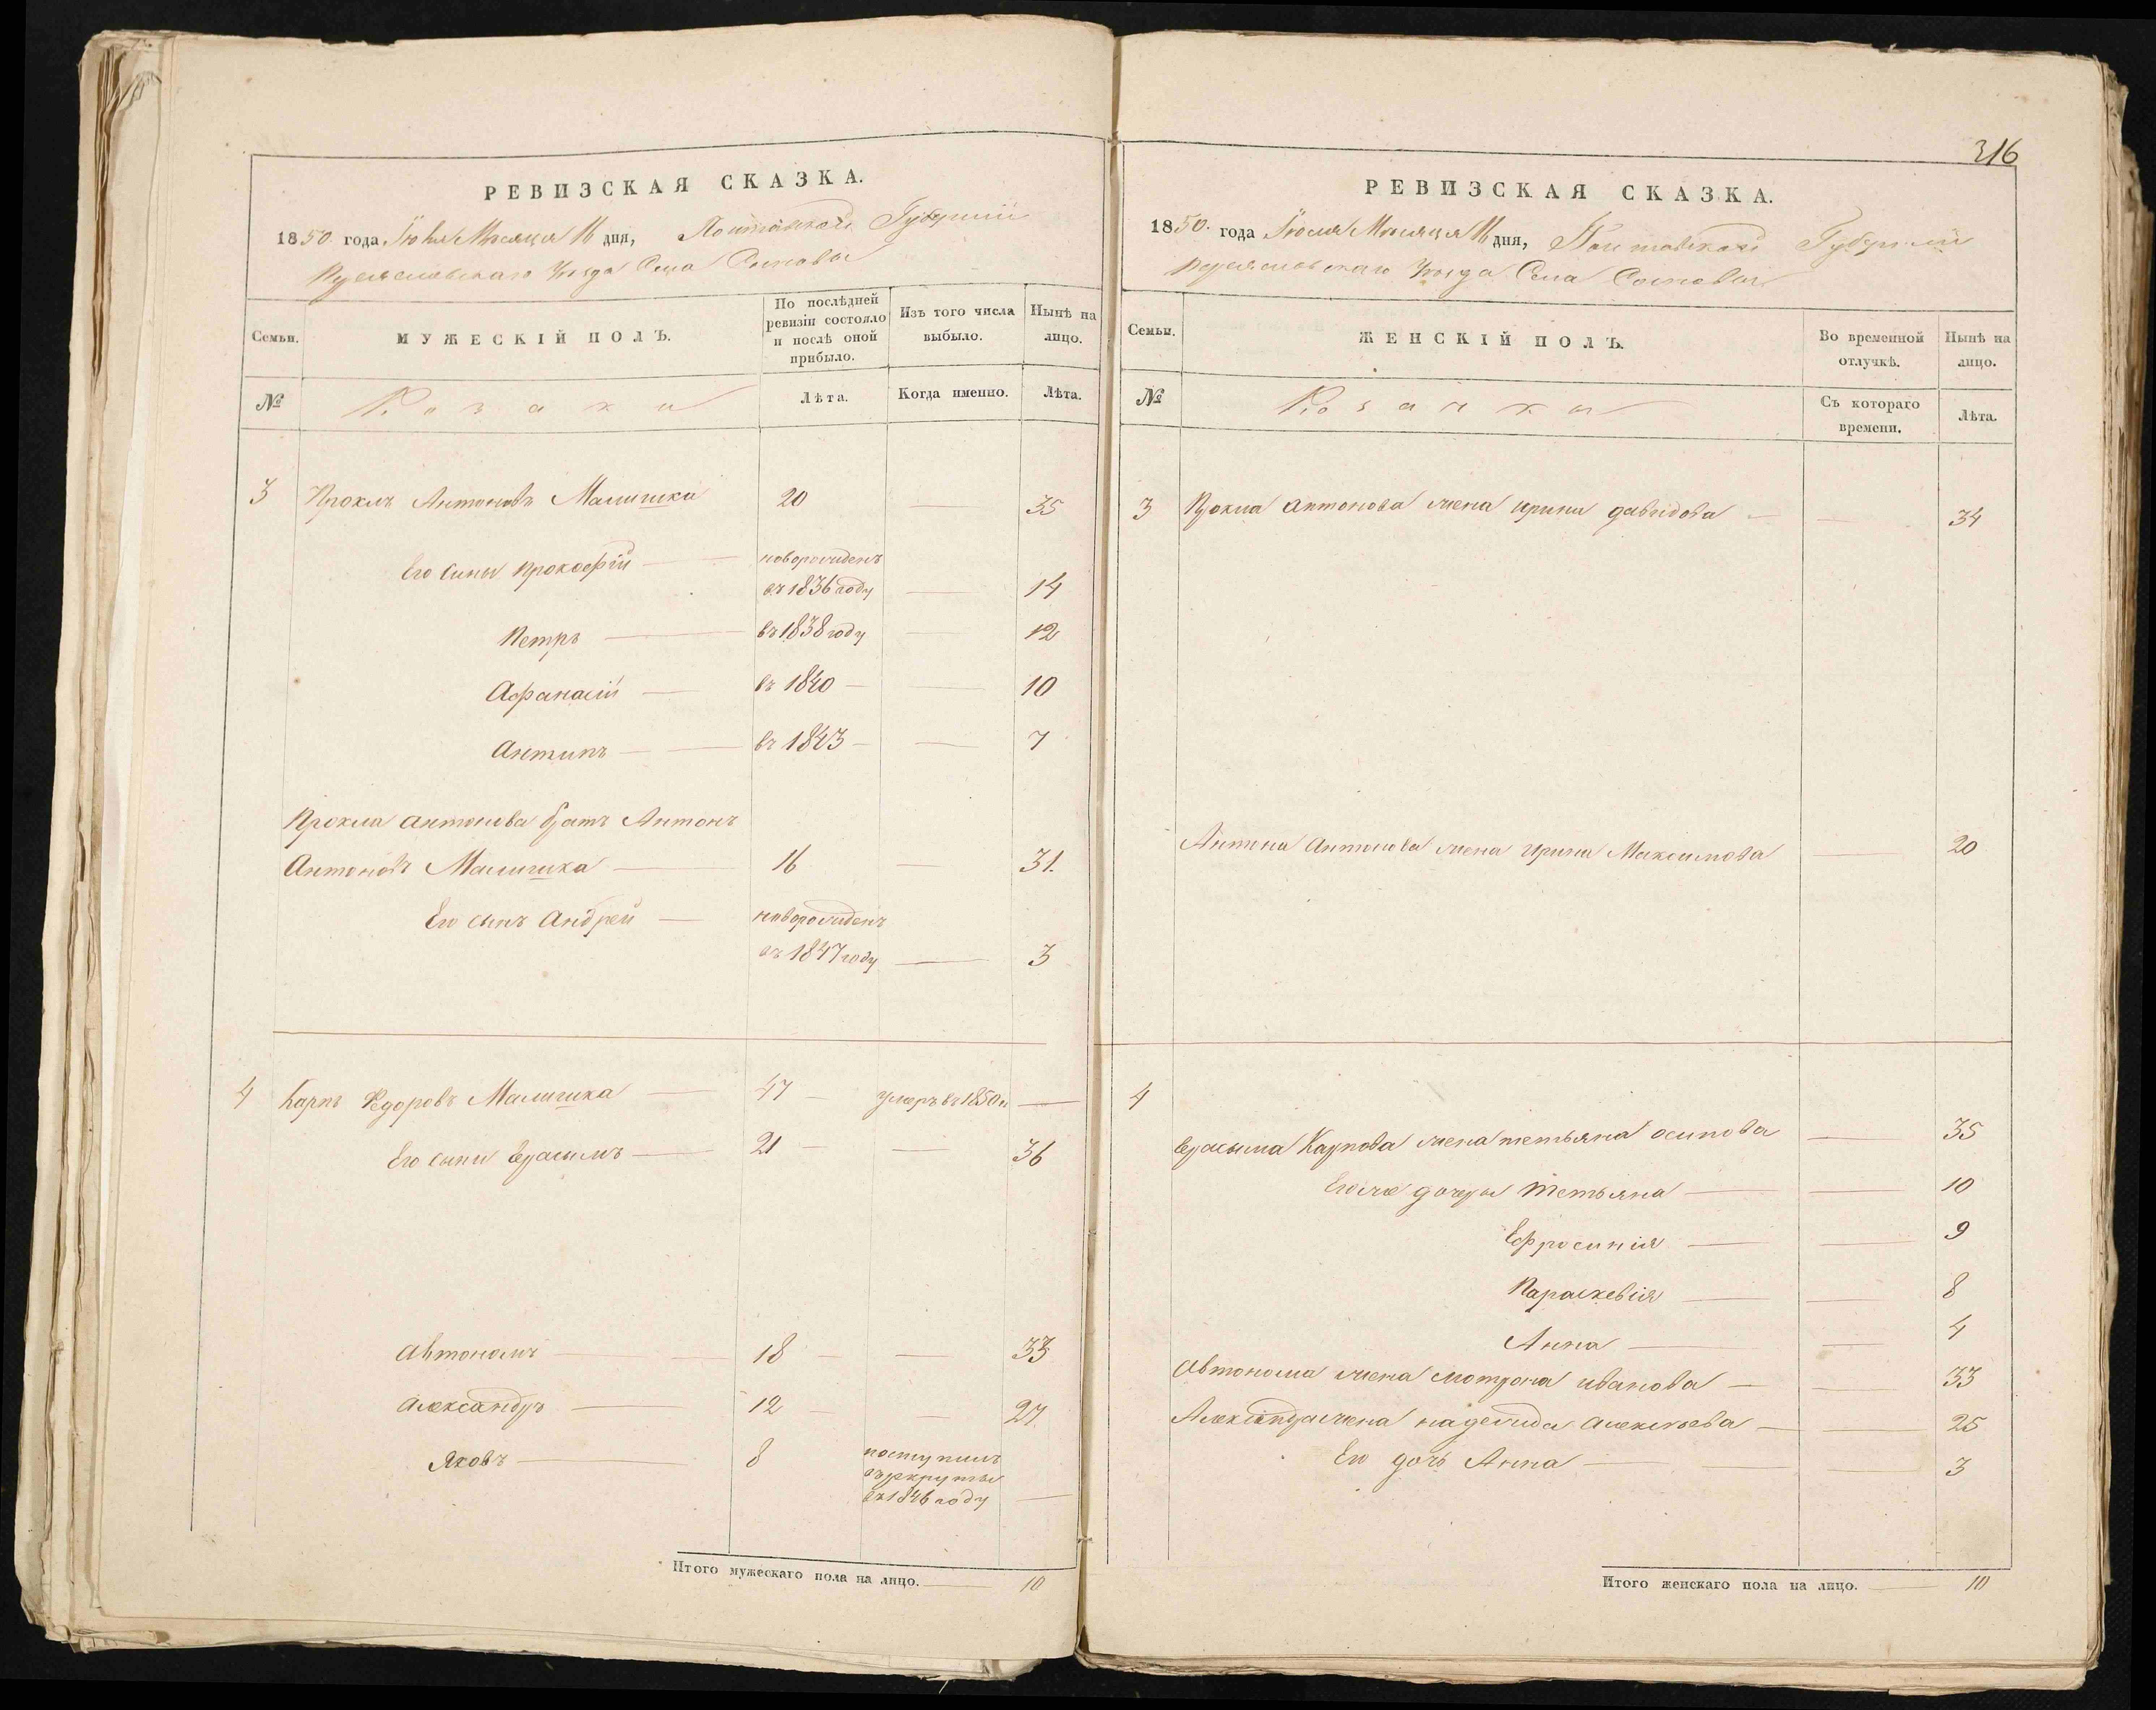 РЕВИЗСКАЯ СКАЗКА.
1850. года Іюля Месяца 16 дня, Полтавской Губерніи
Переяславскаго Уезда Села Сосновы
Семьи.
МУЖЕСКІЙ ПОЛЪ.
По послѣдней ревизіи состояло и послѣ оной прибыло.
Изъ того числа выбыло.
Нынѣ на лицо.
№
Козаки
Лѣта.
Когда именно.
Лѣта.
3 Проклъ Антоновъ Малишка 20 — 35
Его сины Прокофій — новорожденъ
въ 1836 году — 14
Петръ — въ 1838 году — 12
Афанасій — въ 1840 — 10
Антипъ — въ 1843 — 7
Прокла Антонова братъ Антонъ
Антоновъ Малишка — 16 — 31.
Его сынъ Андрей — новорожденъ
въ 1847 году — 3
4 Карпъ Федоровъ Малишка — 47 умеръ въ 1850 г —
Его сыни Ерасимъ — 21 — — 36
Автономъ — 18 — — 33
Александръ — 12 — 27
Яковъ — 8 поступилъ
въ рекруты
въ 1846 году —
Итого мужескаго пола на лицо. — 10
316
РЕВИЗСКАЯ СКАЗКА.
1850. года Іюля Месяца 16 дня, Полтавской Губерніи
Переяславскаго Уезда Села Сосновы
Семьи.
ЖЕНСКІЙ ПОЛЪ.
Во временной отлучкѣ.
Нынѣ на лицо.
№
Козачки
Съ котораго времени.
Лѣта.
3 Прокла Антонова жена Ирина Давидова — — 34
Антона Антонова жена Ирина Максимова — 20
4
Ерасыма Карпова жена тетьяна осипова — 35
Его же дочеры Тетьяна — — 10
Ефросинія — — 9
Параскевія — — 8
Анна — — 4
Автонома жена мотрона иванова — — 33
Александра жена надежда Алексеева — — 25
Его дочь Анна — — — 3
Итого женскаго пола на лицо. — 10